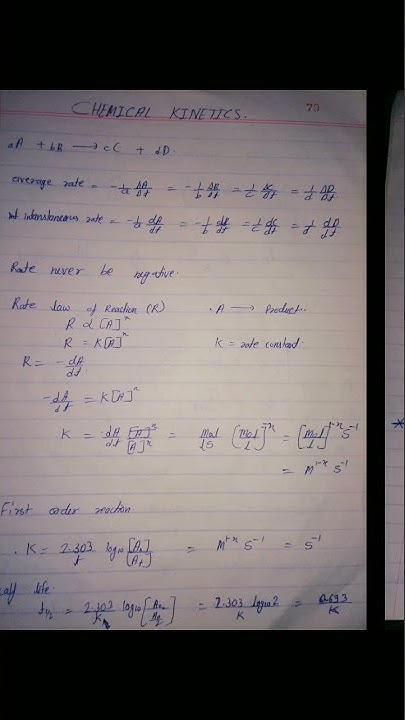 CHEMICAL KINETICS. 70
aA + bB ⟶ cC + dD.
average rate = -1/a ΔA/Δt = -1/b ΔB/Δt = 1/c ΔC/Δt = 1/d ΔD/Δt
rate = -1/a dA/dt = -1/b dB/dt = 1/c dC/dt = 1/d dD/dt
Rate never be negative.
Rate law of Reaction (R) . A ⟶ Product.
R ∝ [A]^x
R = K[A]^x K = rate constant
R = -dA/dt
-dA/dt = K[A]^x
K = -dA/dt = Mol/LS [Mol/L]^-x = [Mol/L]^1-x S^-1
= M^1-x S^-1
First order reaction
. K = 2.303/t log10 [A0]/[At] = M^1-x S^-1 = S^-1
alf life
t1/2 = 2.303/K log10 = 2.303 log10 2/K = 0.693/K